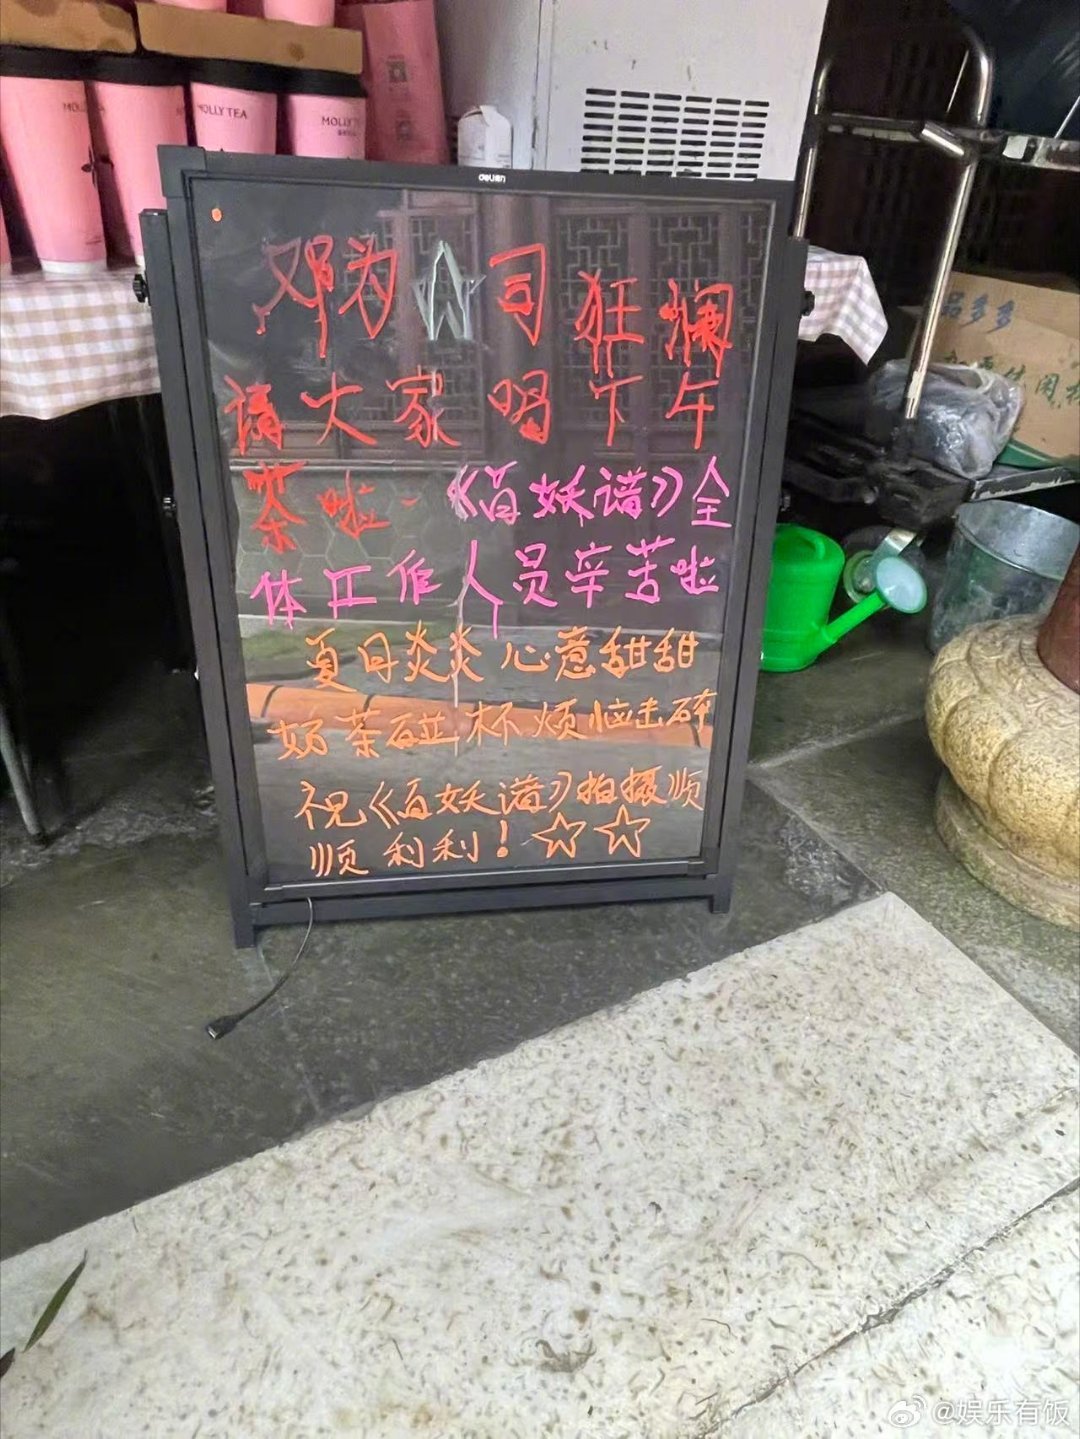 MOLLY TEA
MOLLY TEA
MOLLY
deli
邓为☆司狂澜
请大家喝下午
茶啦~《百妖谱》全
体工作人员辛苦啦
夏日炎炎 心意甜甜
奶茶碰杯 烦恼击碎
祝《百妖谱》拍摄顺
顺利利！☆☆
品多多
@娱乐有饭